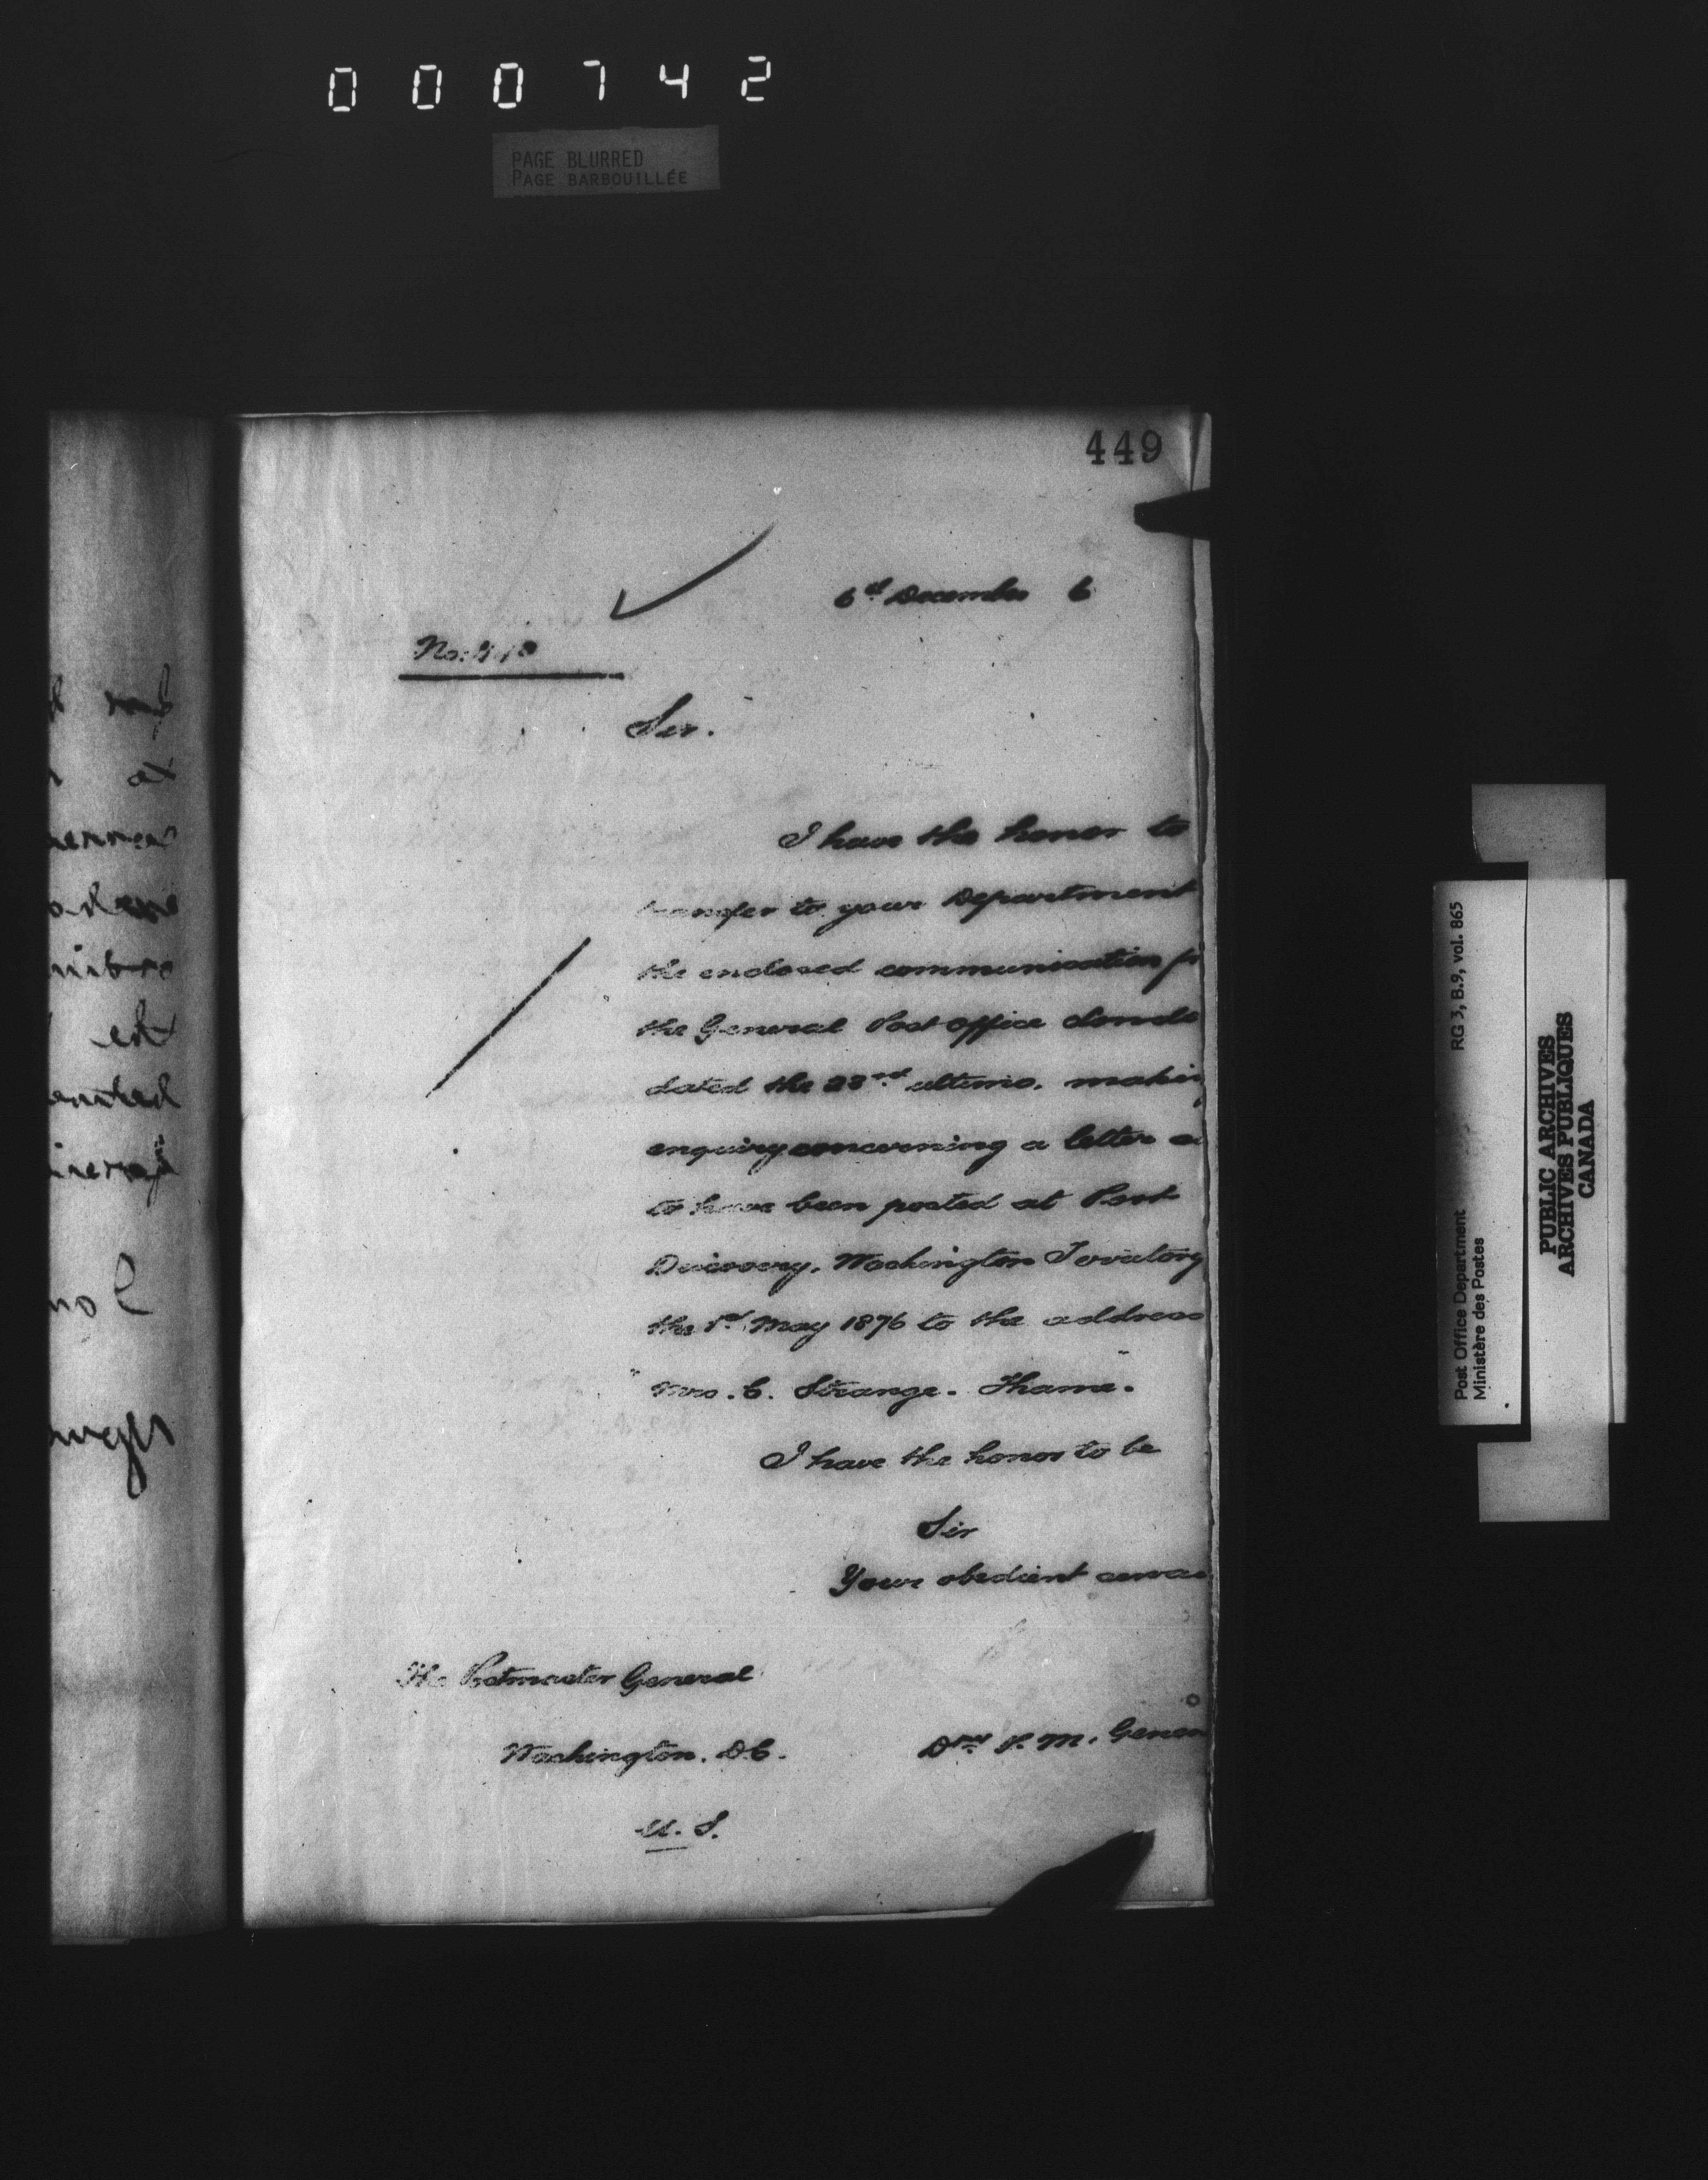 000742
PAGE BLURRED
PAGE BARBOUILLÉE
449
6th December 6
No:
Sir.
I have the honor to
transfer to your Department
the enclosed communication
the General Post office Londo
dated the 23rd ultimo. makin
enquiry concerning a letter
to have been posted at Port
Discovery, Washington Territory
the 1st May 1876 to the address
"Mrs. C. Strange. Thame."
I have the honor to be
Sir
Your obedient serva
The Postmaster General
Washington. D.C.
U. S.
P. M. Gener
Post Office Department RG 3, B.9, vol. 865
Ministère des Postes
PUBLIC ARCHIVES
ARCHIVES PUBLIQUES
CANADA